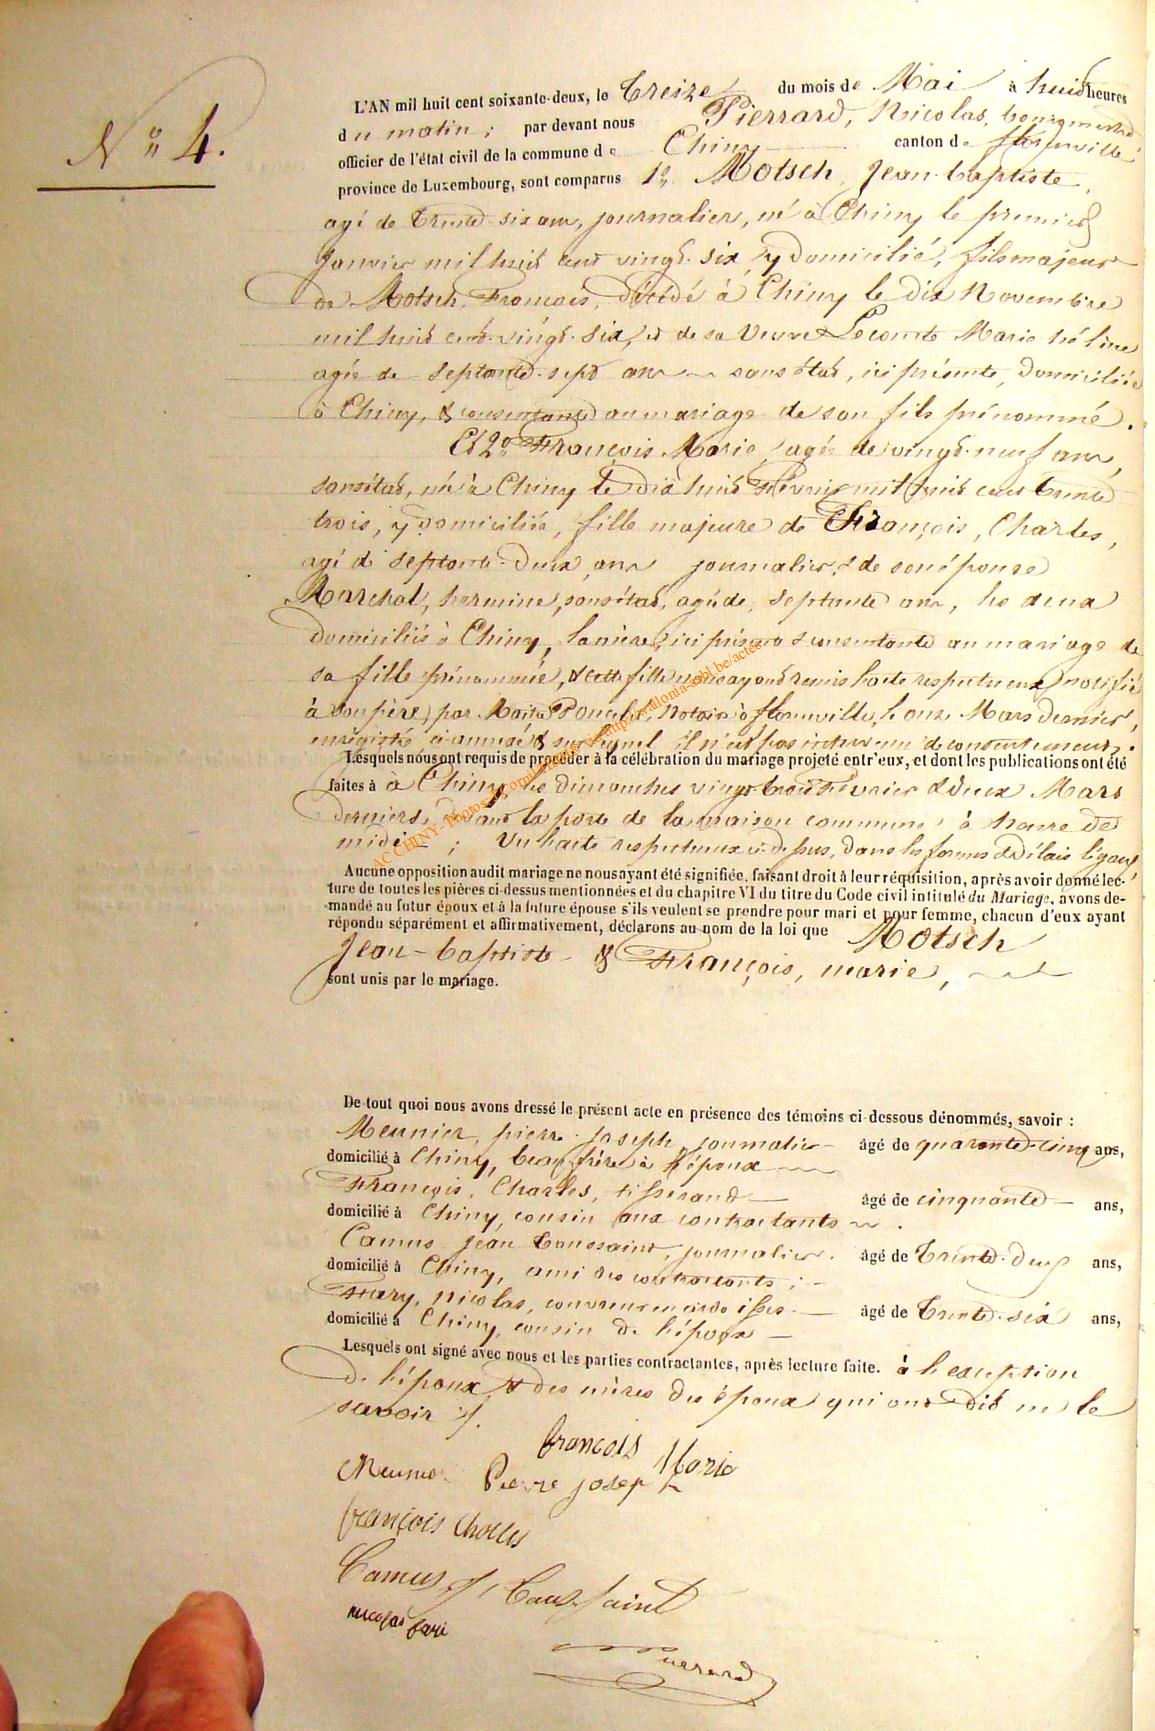 N° 4.
L'AN mil huit cent soixante-deux, le Treize du mois de Mai à huit heures
du matin ; par devant nous Pierrard, Nicolas, bourgmestre
officier de l'état civil de la commune de Chiny canton de florenville
province de Luxembourg, sont comparus 1° Motsch, Jean-baptiste,
agé de trente-six ans, journalier, né à Chiny le premier
Janvier mil huit cent vingt-six, y domicilié, fils majeur
de Motsch, François, décédé à Chiny le dix Novembre
mil huit cent vingt-six, et de sa veuve Lecomte Marie hélène
agée de septante-sept ans sans état, ici présente, domiciliée
à Chiny, & consentante au mariage de son fils prénommé.
Et 2° François Marie, agée de vingt-neuf ans,
sans état, née à Chiny le dix huit Février mil huit cent trente
trois, y domiciliée, fille majeure de François, Charles,
agé de septante-deux ans journalier & de son épouse
Marchal, hermine, sans état, agée de septante ans, les deux
domiciliés à Chiny, la mère ici présente & consentante au mariage de
sa fille prénommée, & cette fille nous ayant remis l'acte respectueux notifié
à son père, par Maître Poncelet, Notaire à florenville, le onze Mars dernier,
enregistré ci-annexé & sur lequel il n'est pas intervenu de consentement.
Lesquels nous ont requis de procéder à la célébration du mariage projeté entr'eux, et dont les publications ont été
faites à à Chiny les dimanches vingt-trois Février & deux Mars
derniers, devant la porte de la maison commune à heure de
midi ; Vu l'acte respectueux ci-dessus, dans les formes & délais légaux,
Aucune opposition audit mariage ne nous ayant été signifiée, faisant droit à leur réquisition, après avoir donné lec-
ture de toutes les pièces ci-dessus mentionnées et du chapitre VI du titre du Code civil intitulé du Mariage, avons de-
mandé au futur époux et à la future épouse s'ils veulent se prendre pour mari et pour femme, chacun d'eux ayant
répondu séparément et affirmativement, déclarons au nom de la loi que Motsch
Jean-baptiste & François, marie,
sont unis par le mariage.
De tout quoi nous avons dressé le présent acte en présence des témoins ci-dessous dénommés, savoir :
Meunier, pierre joseph journalier âgé de quarante-cinq ans,
domicilié à Chiny, beau frère à l'époux
François, Charles, tisserand âgé de cinquante ans,
domicilié à Chiny, cousin aux contractants.
Camus Jean Toussaint, journalier. âgé de trente-deux ans,
domicilié à Chiny, ami des contractants ;
Fary, Nicolas, couvreur en ardoises âgé de trente-six ans,
domicilié à Chiny, cousin de l'époux
Lesquels ont signé avec nous et les parties contractantes, après lecture faite. à l'exception
de l'époux & des mères des époux qui ont dit ne le
savoir ./.
françois Marie
Meunier Pierre josep
françois Charles
Camus J. Toussaint
nicolas fari
Pierrard
AC CHINY - Photos de Cornil Francis via http://wallonia-asbl.be/actes